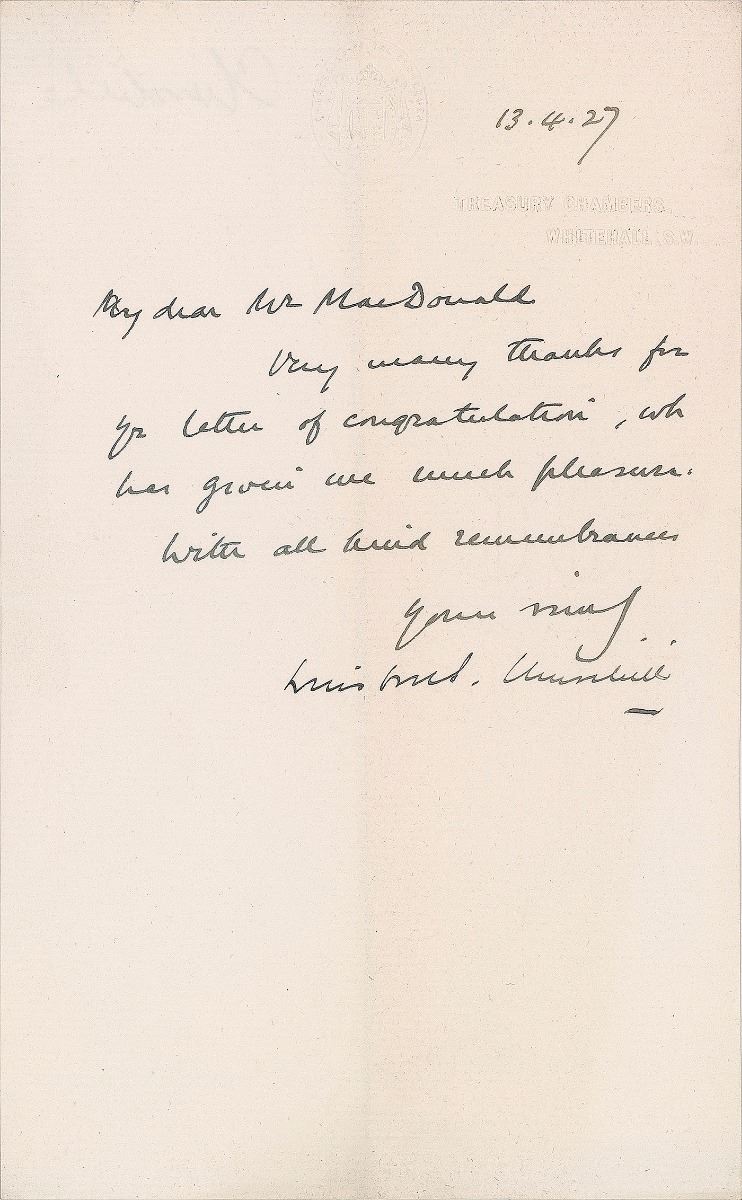 13.4.27
TREASURY CHAMBERS,
WHITEHALL. S.W.
My dear Mr MacDonald
Very many thanks for
yr letter of congratulation, wh
has given me much pleasure.
With all kind remembrances
Yours
Winston S. Churchill